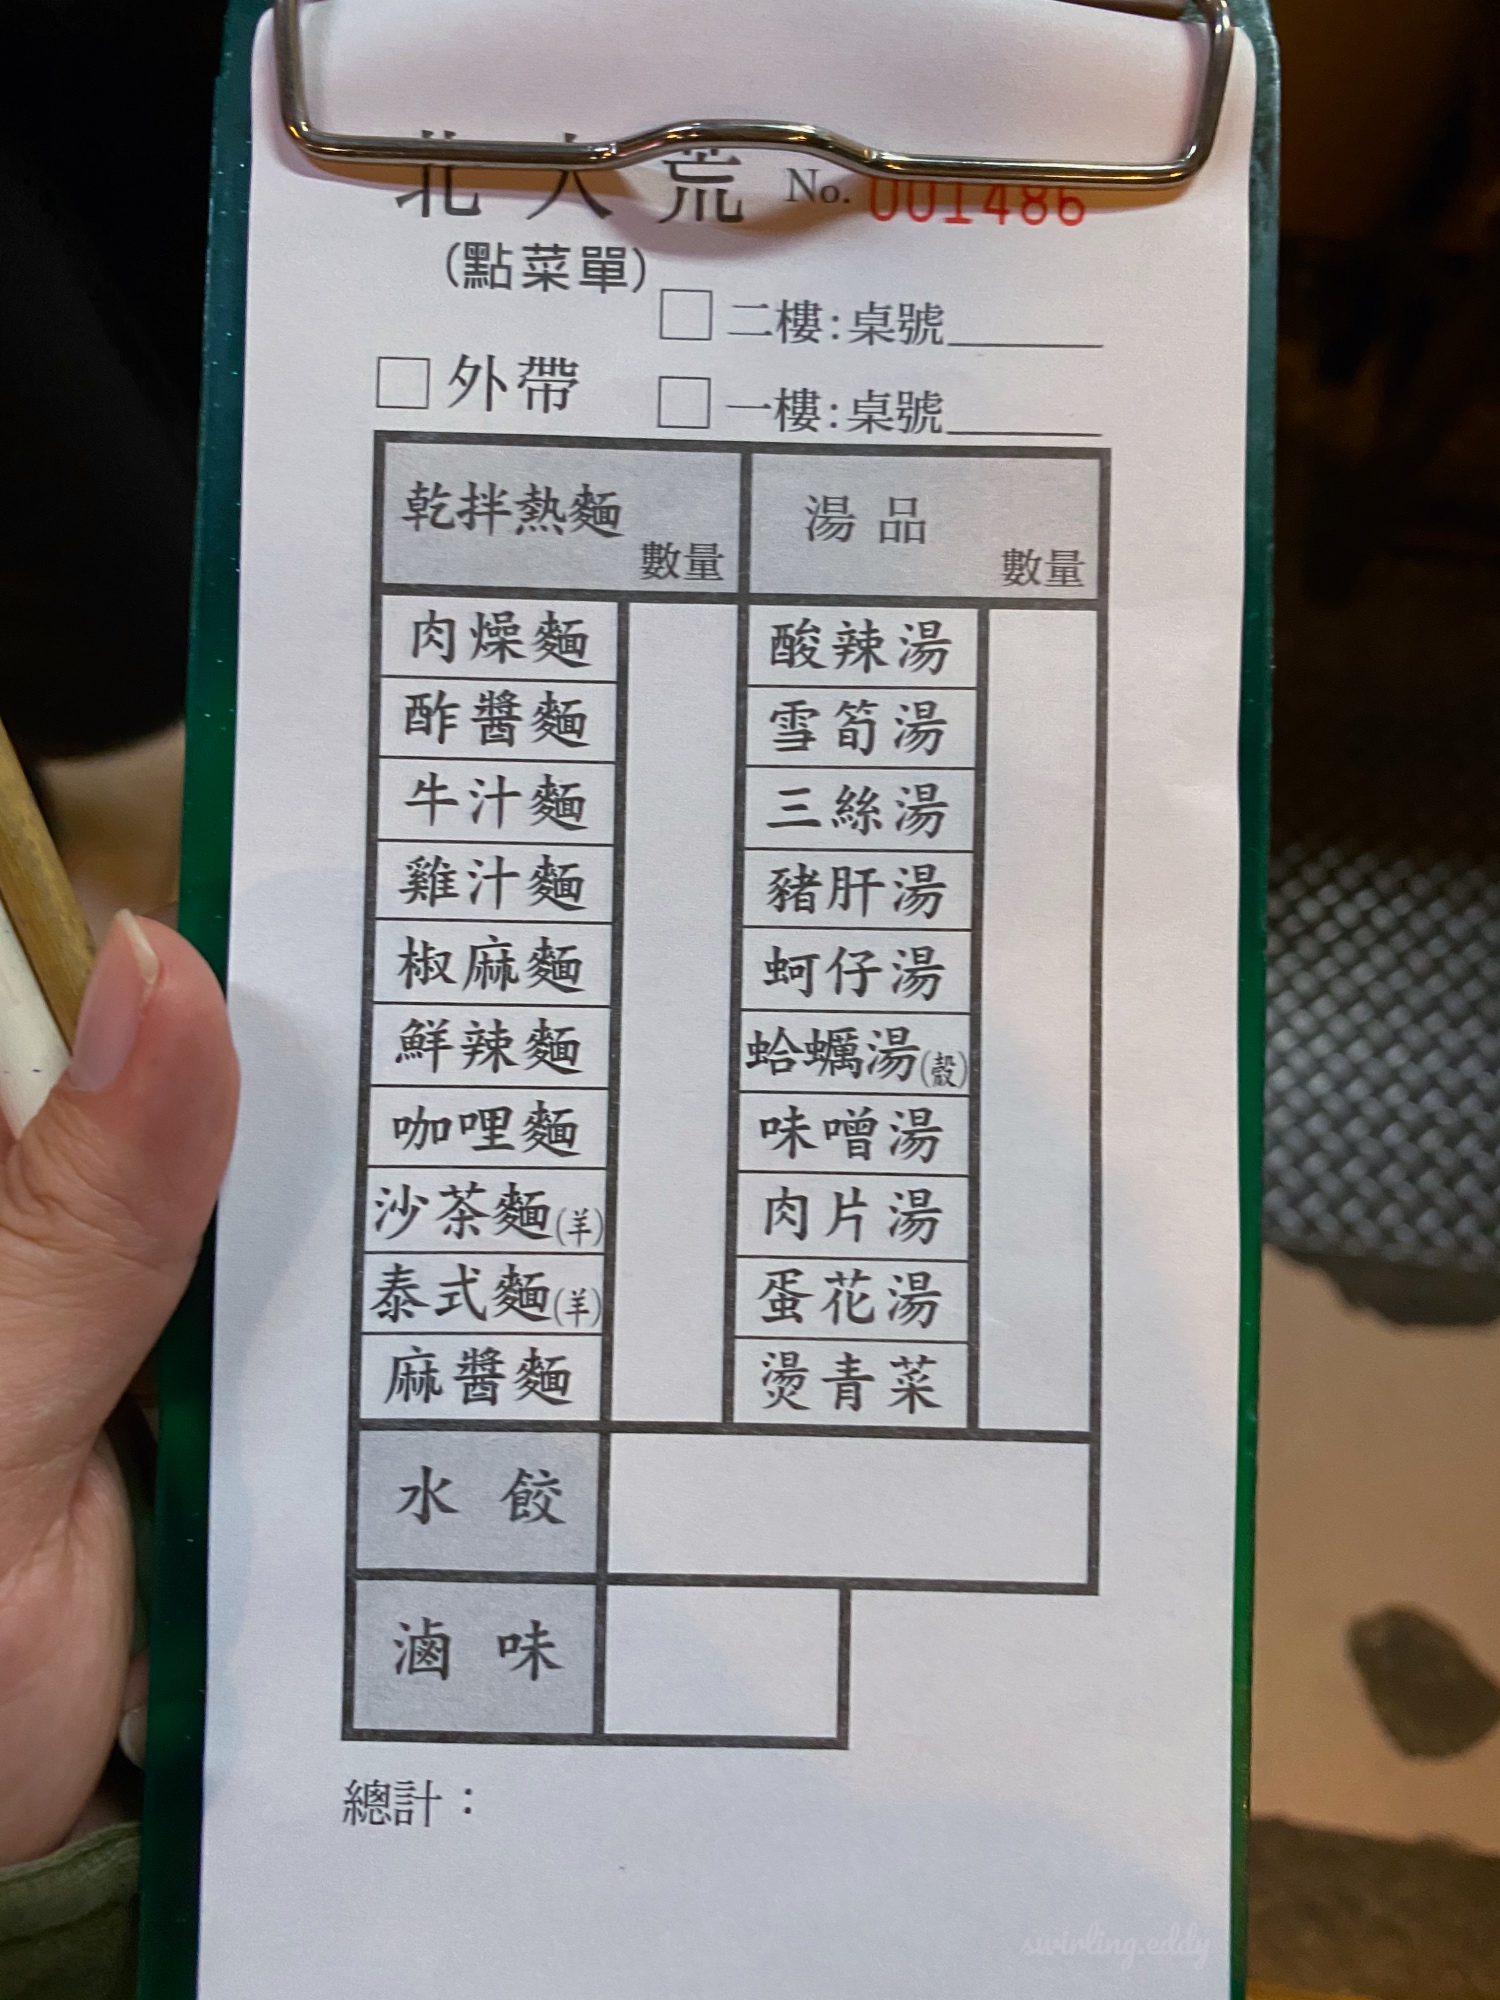 北大荒 No. 001486
(點菜單)
□ 二樓:桌號______
□ 外帶 □ 一樓:桌號______
乾拌熱麵 數量 湯品 數量
肉燥麵 酸辣湯
酢醬麵 雪筍湯
牛汁麵 三絲湯
雞汁麵 豬肝湯
椒麻麵 蚵仔湯
鮮辣麵 蛤蠣湯(殼)
咖哩麵 味噌湯
沙茶麵(羊) 肉片湯
泰式麵(羊) 蛋花湯
麻醬麵 燙青菜
水餃
滷味
總計：
swirling.eddy